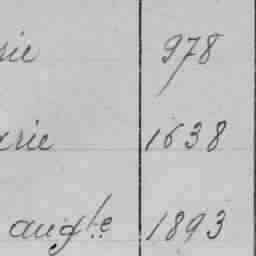 rie 978
erie 1638
angle 1893